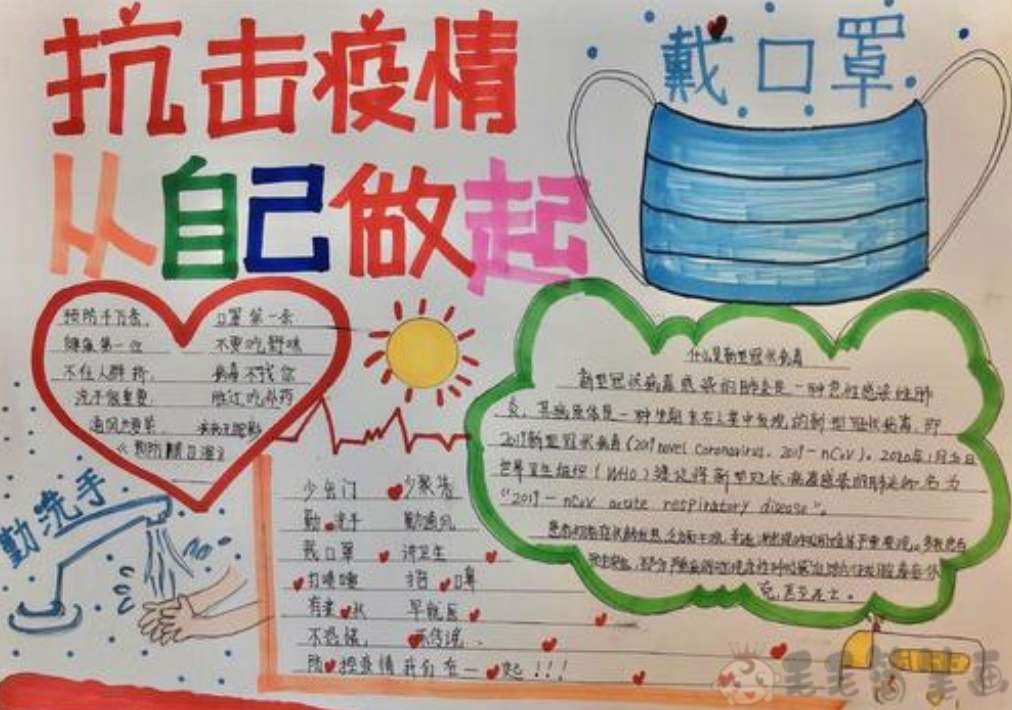 抗击疫情
戴口罩
从自己做起
预防千万条， 口罩第一条
健康第一位 不要吃野味
不往人群挤， 病毒不找你
洗手很重要， 胜过吃补药
《预防顺口溜》
勤洗手
少出门 少聚集
勤洗手 勤通风
戴口罩 讲卫生
打喷嚏 捂口鼻
有症状 早就医
不恐慌， 不传谣、
防控疫情我们在一起！！！
什么是新型冠状病毒
新型冠状病毒感染的肺炎是一种急性感染性肺
炎，其病原体是一种先前未在人类中发现的新型冠状病毒，即
2019新型冠状病毒（2019 novel coronavirus，2019-nCoV）。2020年1月
世界卫生组织（WHO）建议将新型冠状病毒感染的肺炎命名为
“2019-nCoV acute respiratory disease”。